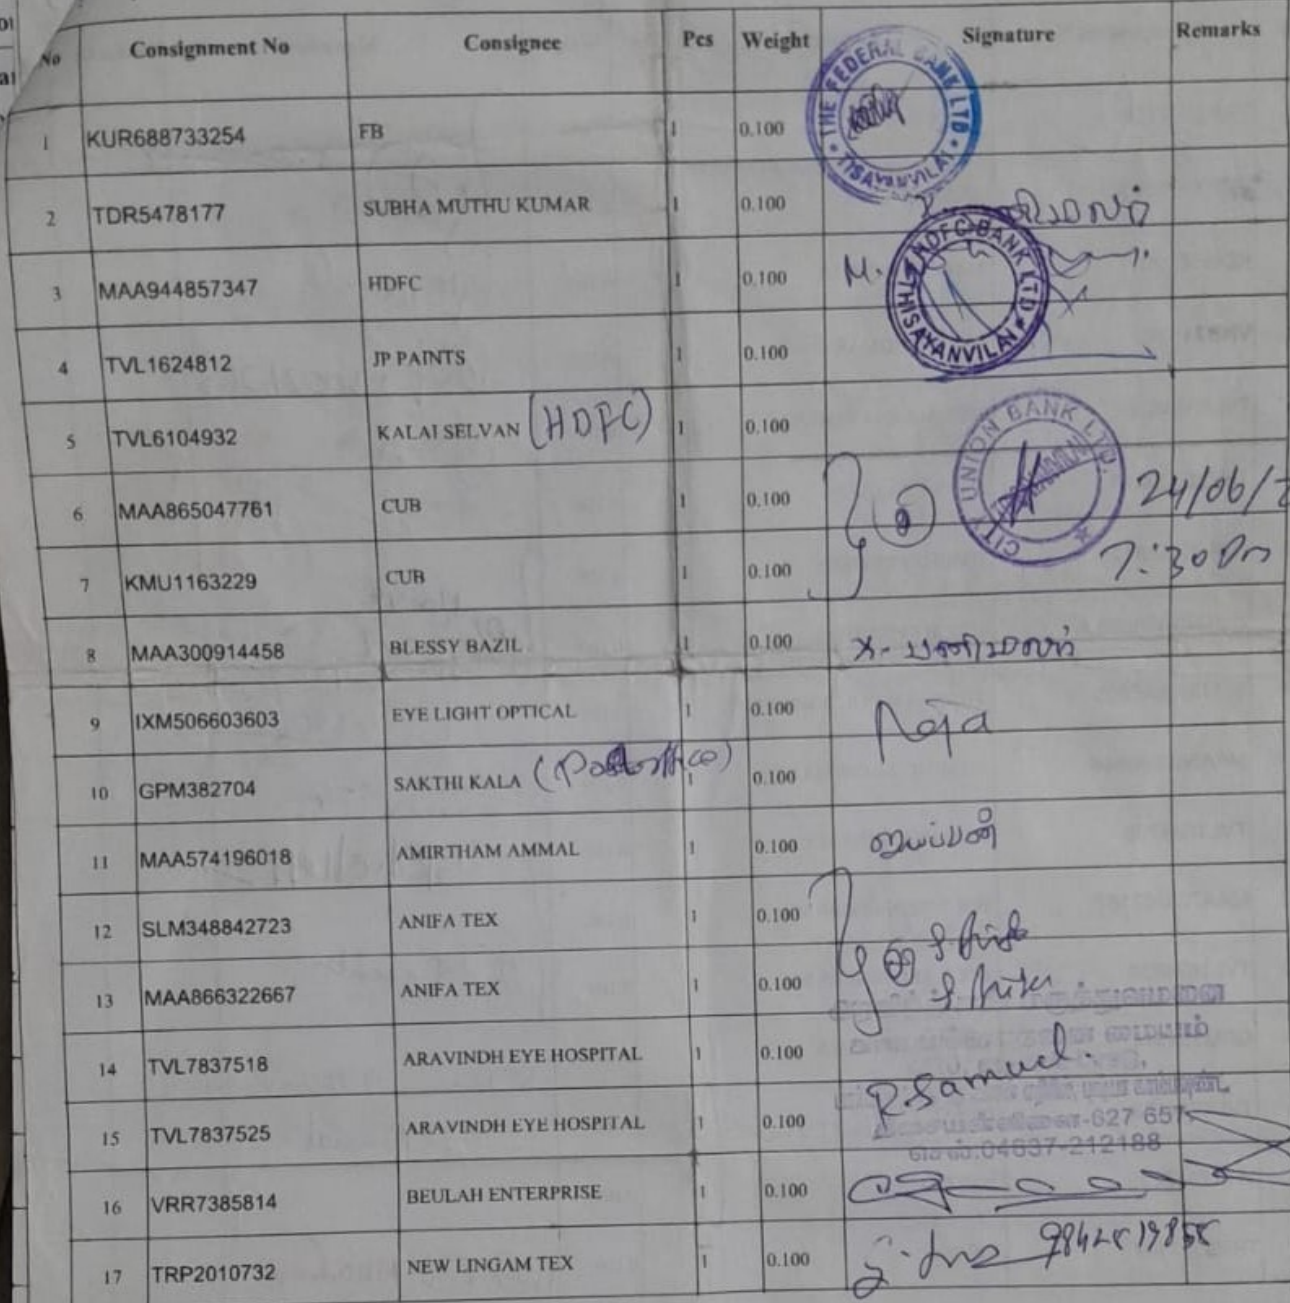 No Consignment No Consignee Pcs Weight Signature Remarks
1 KUR688733254 FB 1 0.100
THE FEDERAL BANK LTD
TISAYANVILAI
2 TDR5478177 SUBHA MUTHU KUMAR 1 0.100
3 MAA944857347 HDFC 1 0.100 M.
HDFC BANK LTD
THISAYANVILAI
4 TVL1624812 JP PAINTS 1 0.100
5 TVL6104932 KALAI SELVAN (HDFC) 1 0.100
CITY UNION BANK LTD.
6 MAA865047761 CUB 1 0.100 24/06/2
7 KMU1163229 CUB 1 0.100 7:30 Pm
8 MAA300914458 BLESSY BAZIL 1 0.100 X. பனிமலர்
9 IXM506603603 EYE LIGHT OPTICAL 1 0.100 Raja
10 GPM382704 SAKTHI KALA (Postoffice) 1 0.100
11 MAA574196018 AMIRTHAM AMMAL 1 0.100 ஐயப்பன்
12 SLM348842723 ANIFA TEX 1 0.100
13 MAA866322667 ANIFA TEX 1 0.100
14 TVL7837518 ARAVINDH EYE HOSPITAL 1 0.100 R.Samuel.
15 TVL7837525 ARAVINDH EYE HOSPITAL 1 0.100
-627 657
04637-212188
16 VRR7385814 BEULAH ENTERPRISE 1 0.100
17 TRP2010732 NEW LINGAM TEX 1 0.100